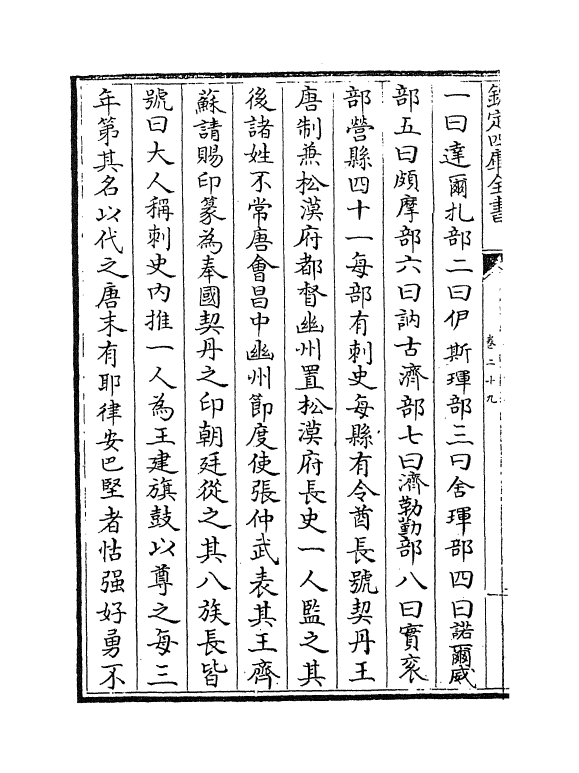 欽定四庫全書
卷二十九
一曰達爾扎部二曰伊斯琿部三曰舍琿部四曰諾爾威
部五曰頗摩部六曰訥古濟部七曰濟勒勤部八曰實衮
部營縣四十一每部有刺史每縣有令酋長號契丹王
唐制兼松漠府都督幽州置松漠府長史一人監之其
後諸姓不常唐會昌中幽州節度使張仲武表其王齊
蘇請賜印篆為奉國契丹之印朝廷從之其八族長皆
號曰大人稱刺史内推一人為王建旗鼓以尊之每三
年第其名以代之唐末有耶律安巴堅者怙强好勇不